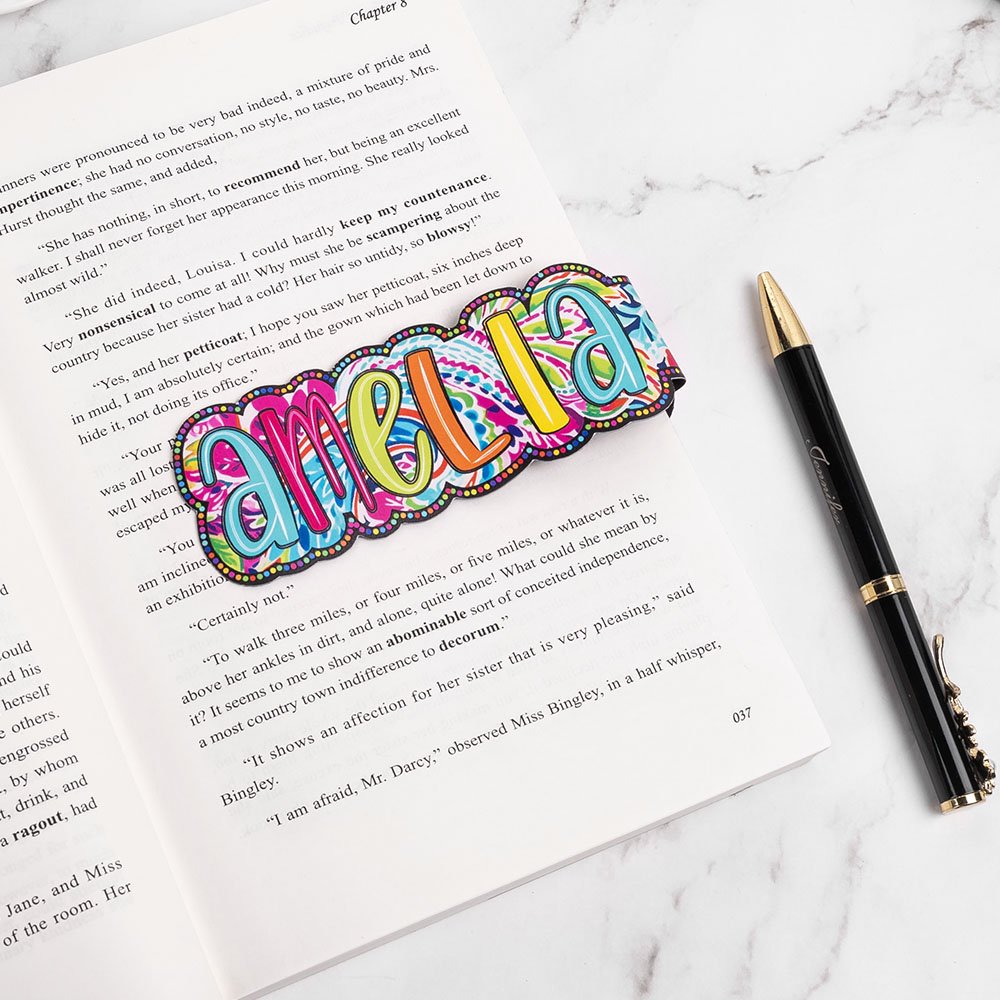 Chapter 8
nners were pronounced to be very bad indeed, a mixture of pride and
mpertinence; she had no conversation, no style, no taste, no beauty. Mrs.
Hurst thought the same, and added,
“She has nothing, in short, to recommend her, but being an excellent
walker. I shall never forget her appearance this morning. She really looked
almost wild.”
“She did indeed, Louisa. I could hardly keep my countenance.
Very nonsensical to come at all! Why must she be scampering about the
country because her sister had a cold? Her hair so untidy, so blowsy!”
“Yes, and her petticoat; I hope you saw her petticoat, six inches deep
in mud, I am absolutely certain; and the gown which had been let down to
hide it, not doing its office.”
“Your
was all lost
well when
escaped my
“You
am incline
an exhibition
“Certainly not.”
“To walk three miles, or four miles, or five miles, or whatever it is,
above her ankles in dirt, and alone, quite alone! What could she mean by
it? It seems to me to show an abominable sort of conceited independence,
a most country town indifference to decorum.”
“It shows an affection for her sister that is very pleasing,” said
Bingley.
“I am afraid, Mr. Darcy,” observed Miss Bingley, in a half whisper,
037
ameLIa
Jennifer
ould
nd his
herself
e others.
engrossed
, by whom
t, drink, and
a ragout, had
Jane, and Miss
of the room. Her